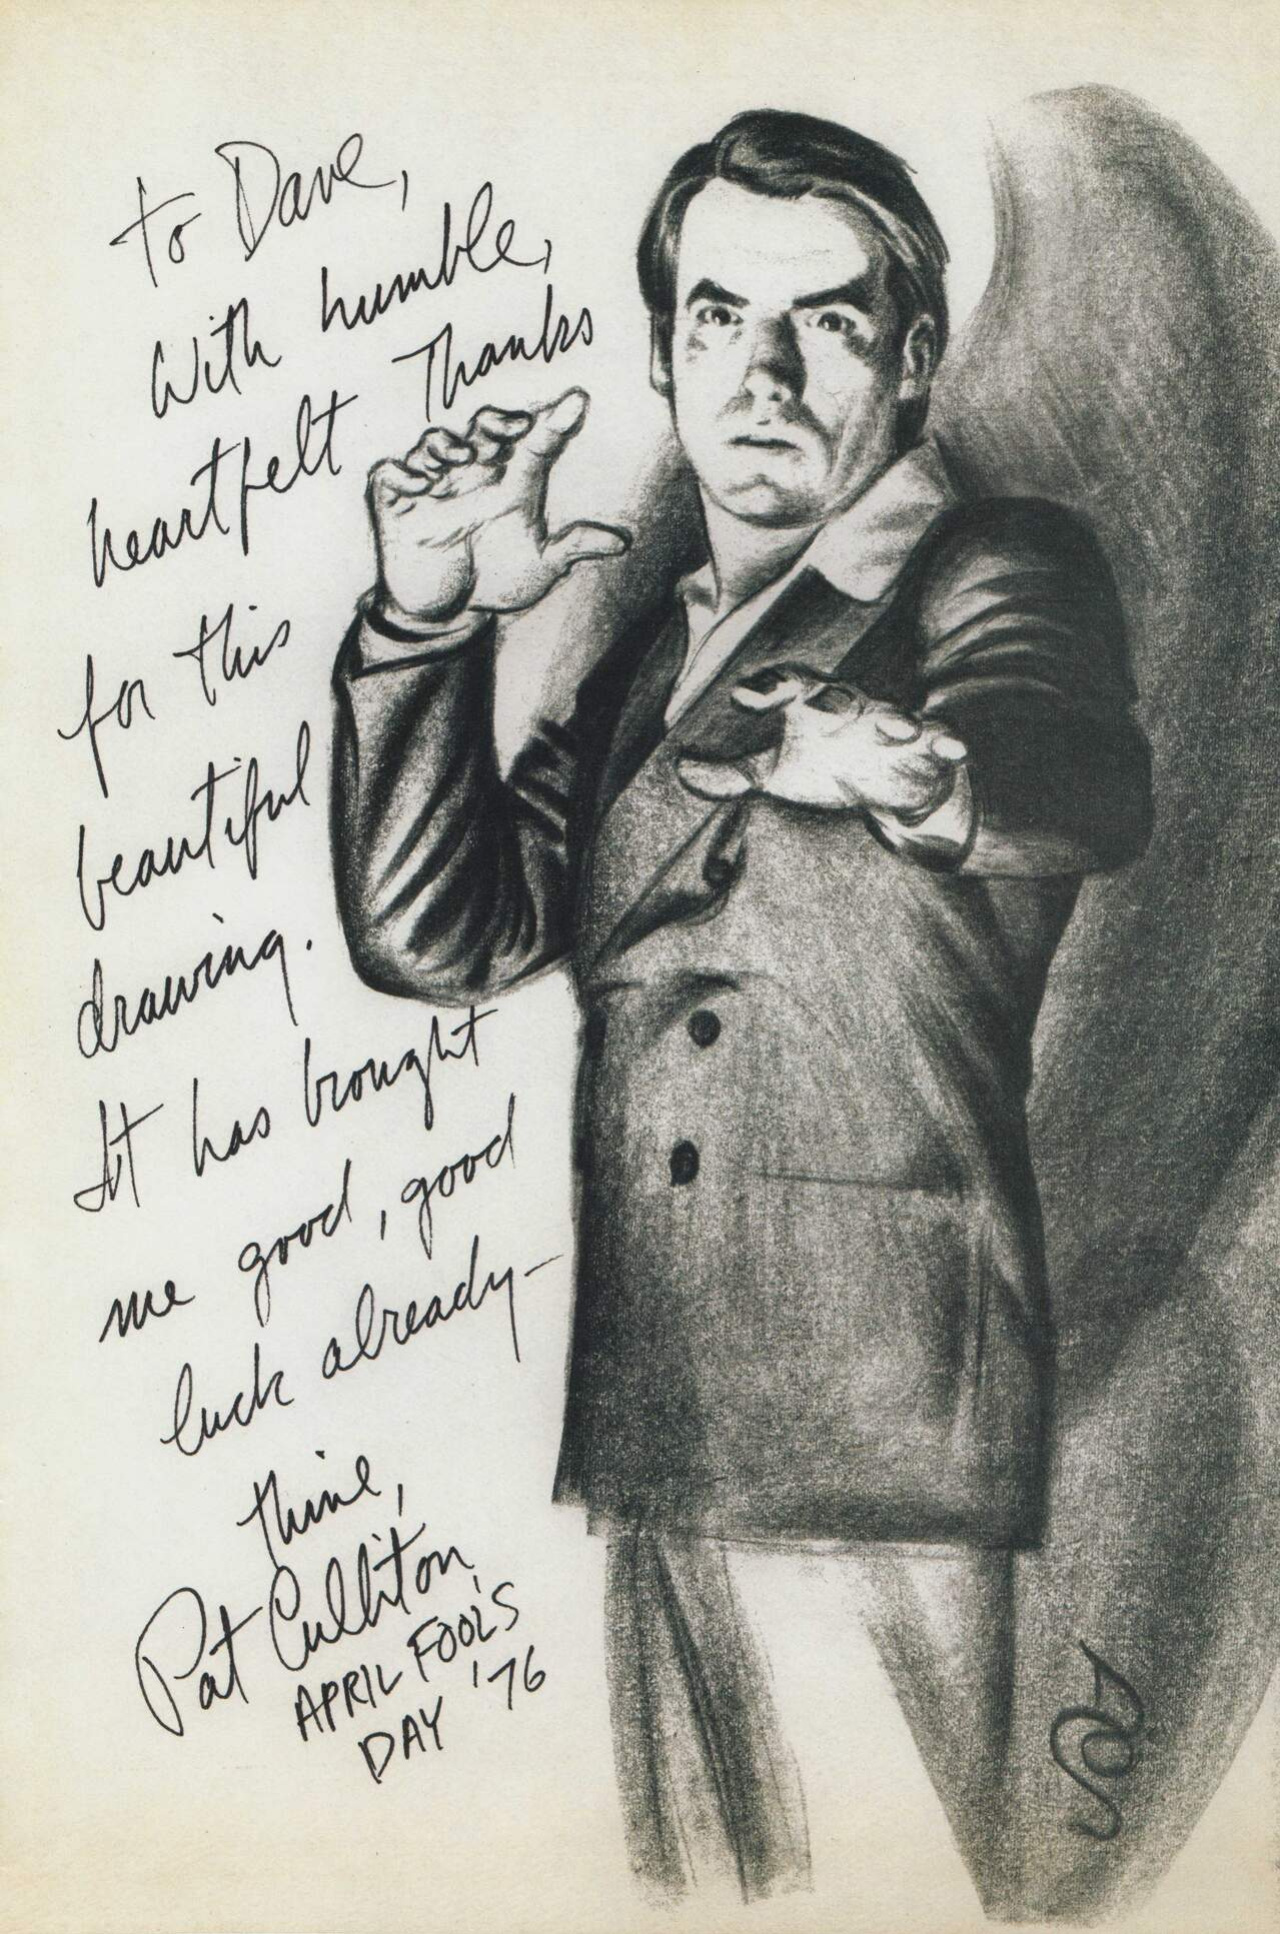 to Dave,
With humble,
heartfelt Thanks
for this
beautiful
drawing.
It has brought
me good, good
luck already—
thine,
Pat Culliton
APRIL FOOL'S
DAY '76